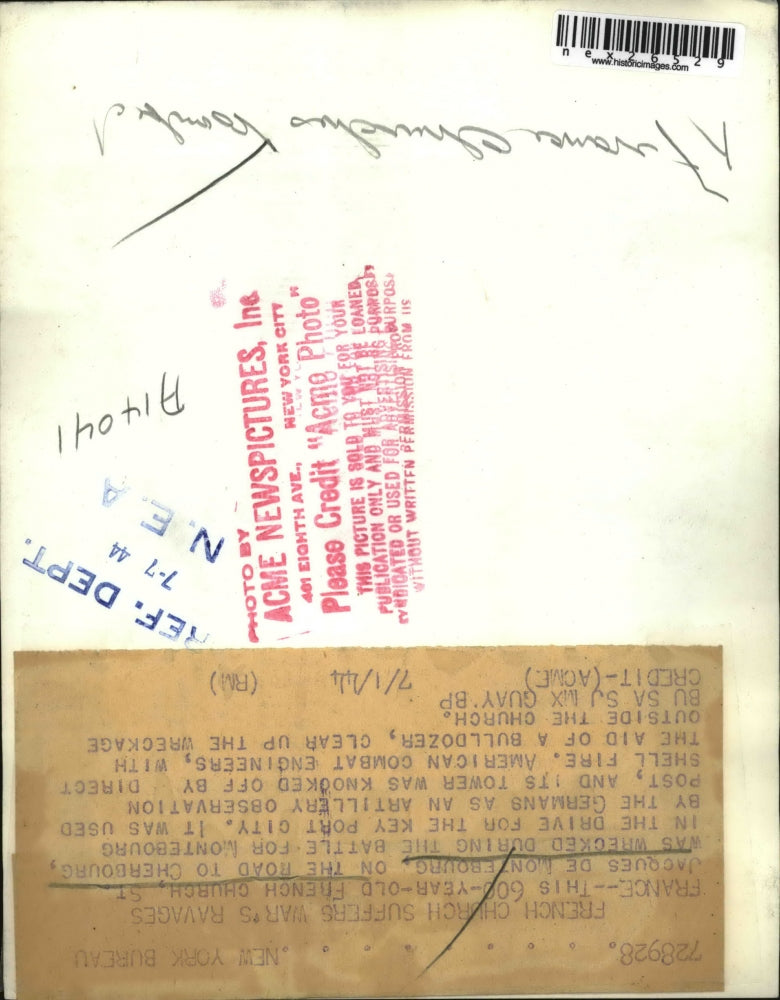 nex26529
www.historicimages.com
France Churches Bombed
A14041
REF. DEPT.
7-7 44
N. E. A
PHOTO BY
ACME NEWSPICTURES, Inc
401 EIGHTH AVE., NEW YORK CITY
Please Credit "Acme Photo"
THIS PICTURE IS SOLD TO YOU FOR YOUR
PUBLICATION ONLY AND MUST NOT BE LOANED,
SYNDICATED OR USED FOR ADVERTISING PURPOSE
WITHOUT WRITTEN PERMISSION FROM US
728928 . . . . . . . . NEW YORK BUREAU
FRENCH CHURCH SUFFERS WAR'S RAVAGES
FRANCE--THIS 600-YEAR-OLD FRENCH CHURCH, ST.
JACQUES DE MONTEBOURG, ON THE ROAD TO CHERBOURG,
WAS WRECKED DURING THE BATTLE FOR MONTEBOURG
IN THE DRIVE FOR THE KEY PORT CITY. IT WAS USED
BY THE GERMANS AS AN ARTILLERY OBSERVATION
POST, AND ITS TOWER WAS KNOCKED OFF BY DIRECT
SHELL FIRE. AMERICAN COMBAT ENGINEERS, WITH
THE AID OF A BULLDOZER, CLEAR UP THE WRECKAGE
OUTSIDE THE CHURCH.
BU SA SJ MX QUAY BP
CREDIT-(ACME) 7/1/44 (RM)